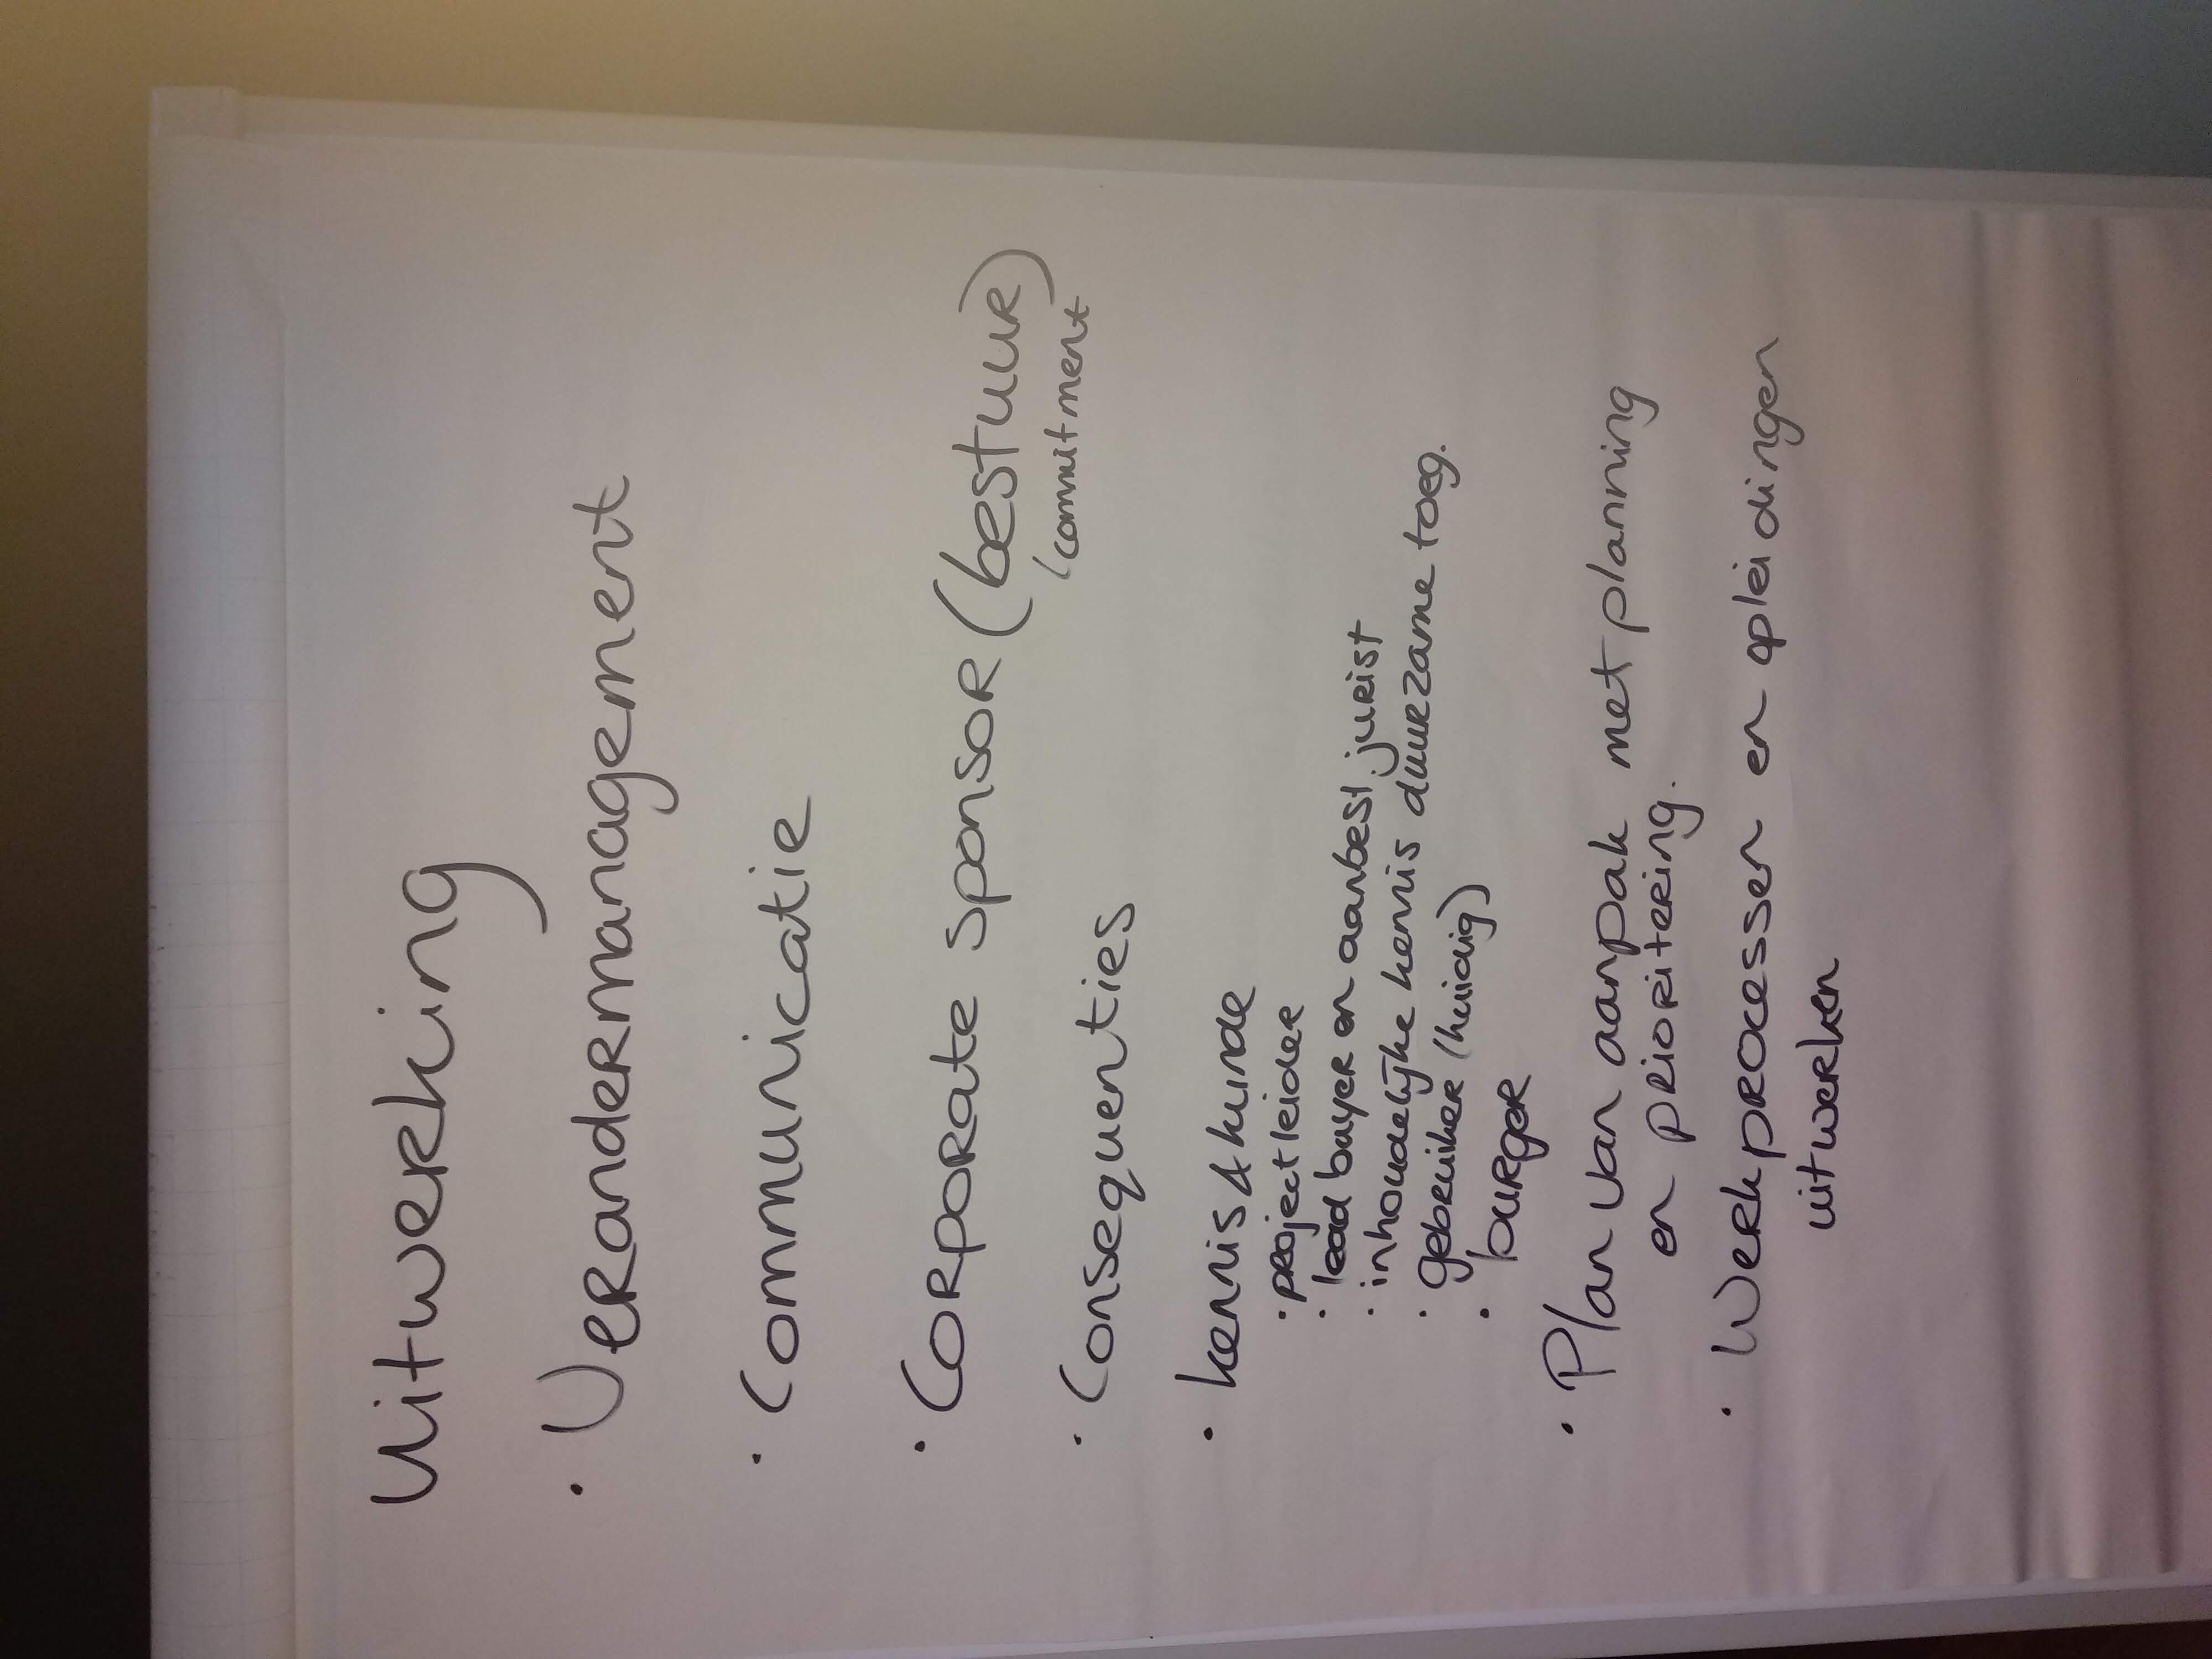 Uitwerking
· Verandermanagement
· Communicatie
· Corporate sponsor (bestuur)
(commitment
· Consequenties
· kennis & kunde
· projectleider
· lead buyer en aanbest. jurist
· inhoudelijke kennis duurzame toeg.
· gebruiker (huidig)
· burger
· Plan van aanpak met planning
en prioritering.
· Werkprocessen en opleidingen
uitwerken